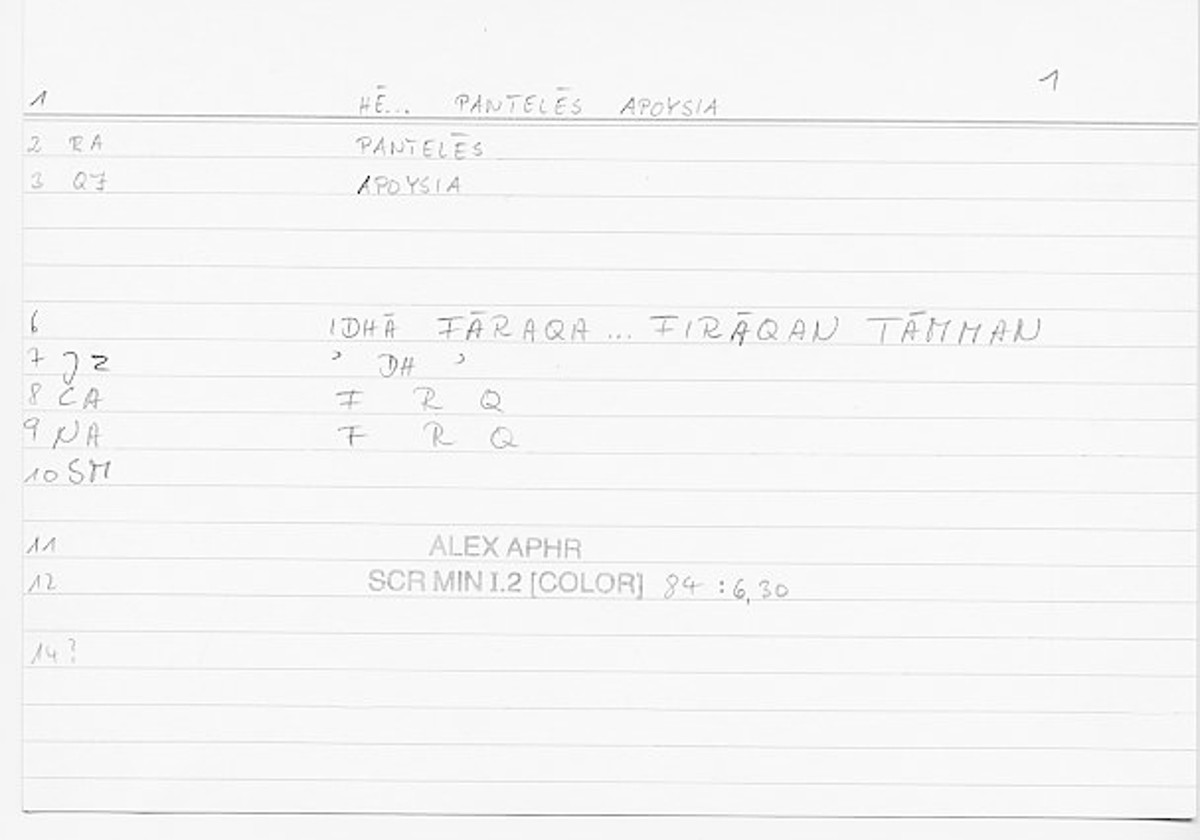 1
1 HĒ... PANTELĒS APOYSIA
2 RA PANTELĒS
3 QF APOYSIA
6 IDHĀ FĀRAQA ... FIRĀQAN TĀMMAN
7 JZ ʾ DH ʾ
8 CA F R Q
9 NA F R Q
10 SM
11 ALEX APHR
12 SCR MIN I.2 [COLOR] 84 : 6,30
14?